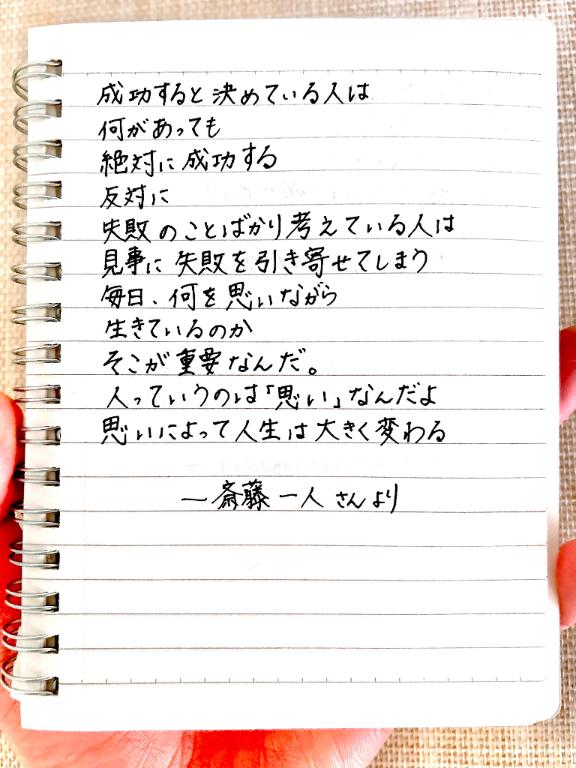 成功すると決めている人は
何があっても
絶対に成功する
反対に
失敗のことばかり考えている人は
見事に失敗を引き寄せてしまう
毎日、何を思いながら
生きているのか
そこが重要なんだ。
人っていうのは「思い」なんだよ
思いによって人生は大きく変わる
―斎藤一人さんより